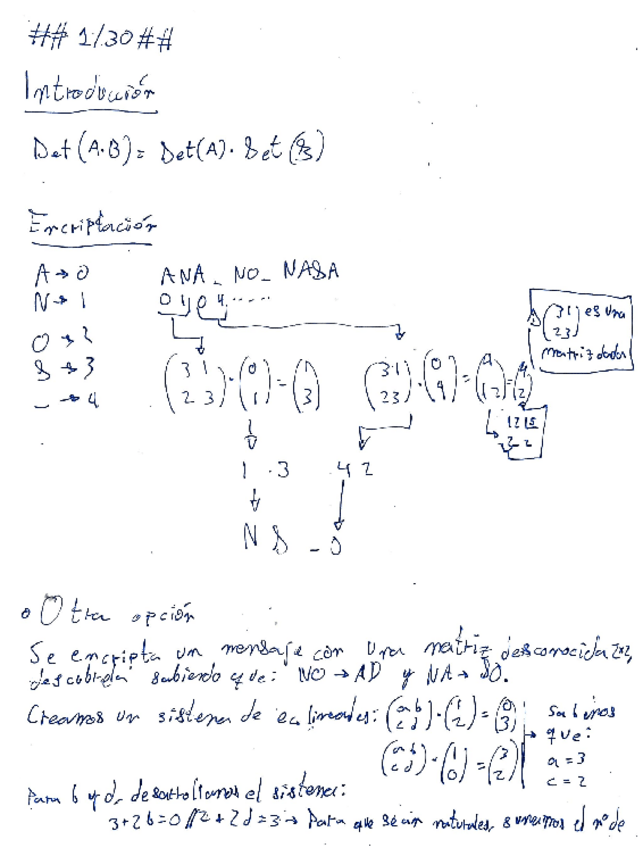 ## 1/30 ##
Introducción
Det(A·B) = Det(A)·Det(B)
Encriptación
A → 0
N → 1
O → 2
S → 3
_ → 4
ANA_NO_NASA
0 1 0 4 .....
(3 1 / 2 3)·(0 / 1) = (1 / 3)
(3 1 / 2 3)·(0 / 4) = (4 / 12) = (4 / 2)
(3 1 / 2 3) es una
matriz dada
12 |5
2 2
1 · 3 4 2
N S _ O
• Otra opción
Se encripta un mensaje con una matriz desconocida 2x2,
descubrela sabiendo que: NO → AD y NA → SO.
Creamos un sistema de ec. lineales: (a b / c d)·(1 / 2) = (0 / 3)
(a b / c d)·(1 / 0) = (3 / 2)
Sabemos
que:
a = 3
c = 2
Para b y d, desarrollamos el sistema:
3+2b=0 // 2+2d=3 → Para que sean naturales, sumamos el nº de